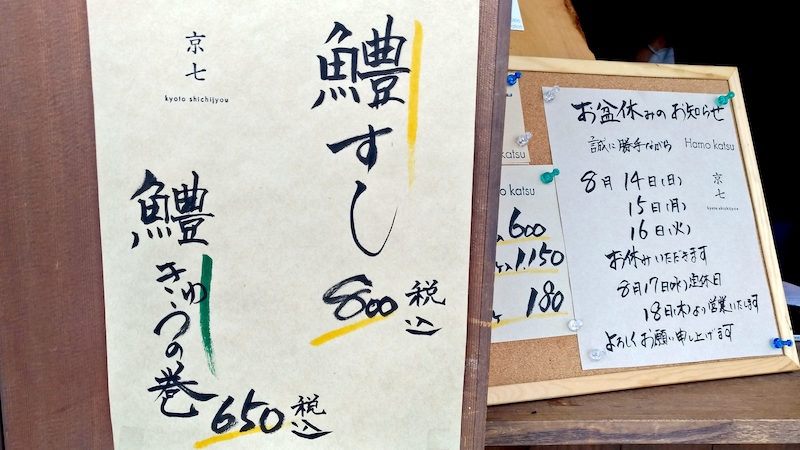 京七
kyoto shichijyou
鱧すし
800 税込
鱧きゅうの巻
650 税込
katsu
o katsu
600
1.150
180
お盆休みのお知らせ
誠に勝手ながら
Hamo katsu
8月14日(日)
15日(月)
16日(火)
京七
kyoto shichijyou
お休みいただきます
8月17日(水)定休日
18日(木)より営業いたします
よろしくお願い申し上げます